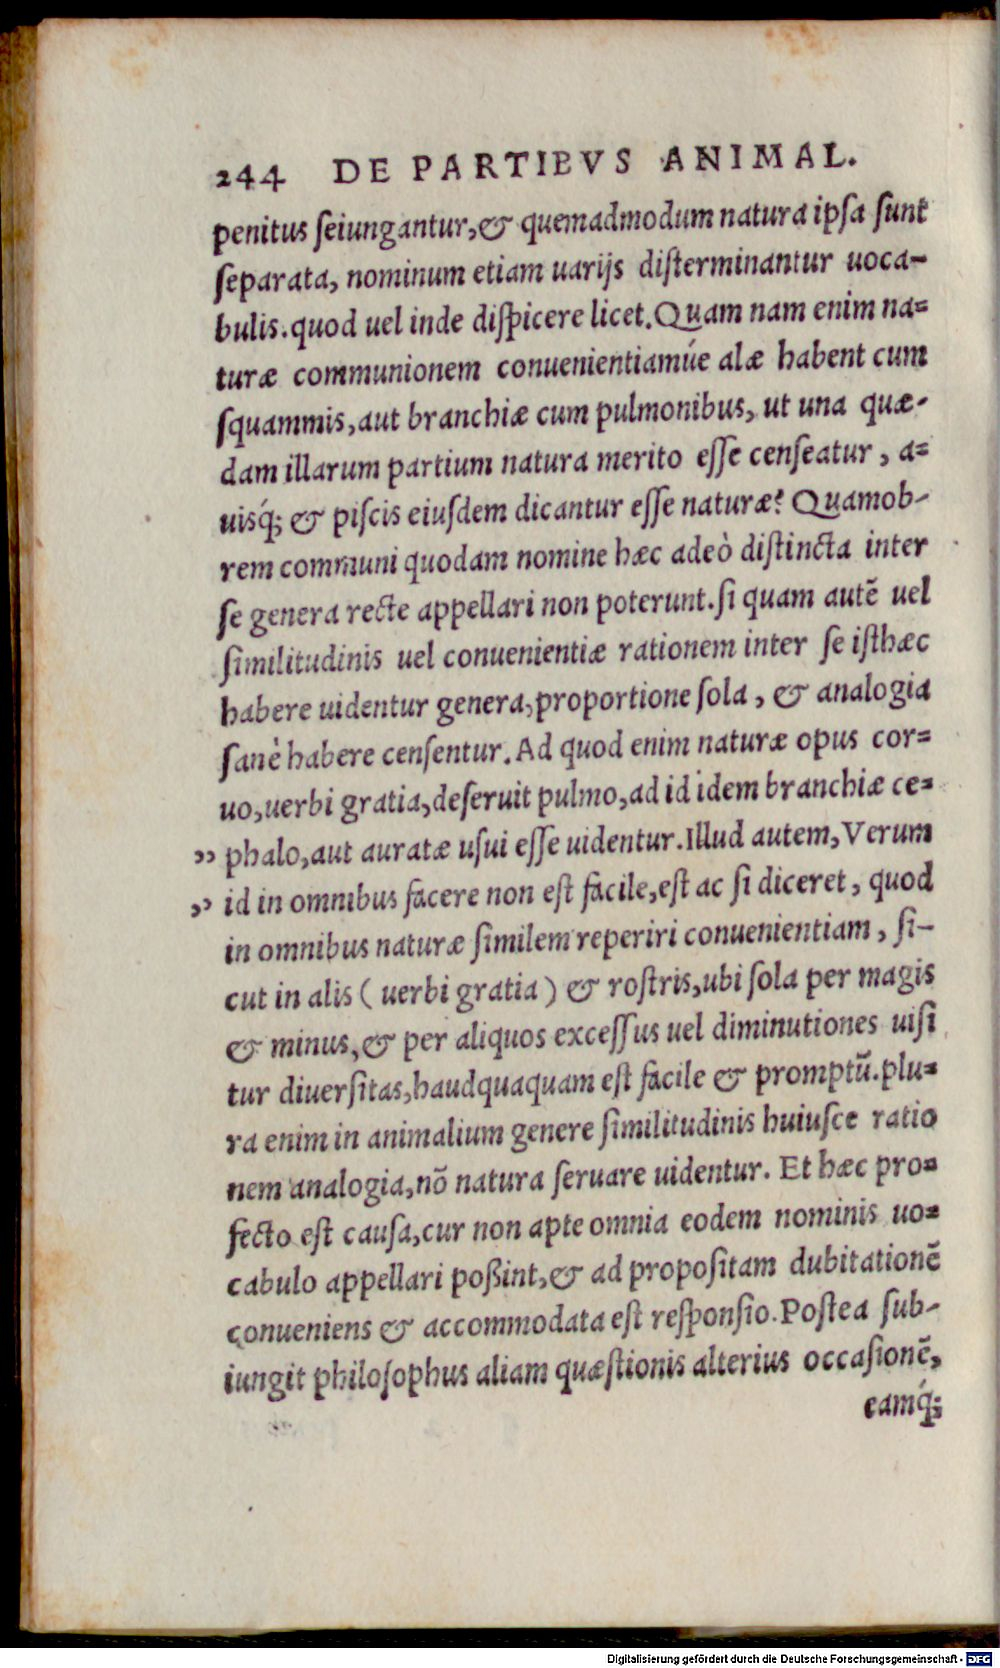 244 DE PARTIBVS ANIMAL.
penitus ſeiungantur,& quemadmodum natura ipſa ſunt
ſeparata, nominum etiam uarijs diſterminantur uoca-
bulis.quod uel inde diſpicere licet.Quam nam enim na=
turæ communionem conuenientiamúe alæ habent cum
ſquammis,aut branchiæ cum pulmonibus, ut una quæ-
dam illarum partium natura merito eſſe cenſeatur, a=
uisq́; & piſcis eiuſdem dicantur eſſe naturæ? Quamob-
rem communi quodam nomine hæc adeò diſtincta inter
ſe genera recte appellari non poterunt.ſi quam autẽ uel
ſimilitudinis uel conuenientiæ rationem inter ſe iſthæc
habere uidentur genera,proportione ſola, & analogia
ſanè habere cenſentur. Ad quod enim naturæ opus cor=
uo,uerbi gratia,deſeruit pulmo,ad id idem branchiæ ce=
,, phalo,aut auratæ uſui eſſe uidentur.Illud autem,Verum
,, id in omnibus facere non eſt facile,eſt ac ſi diceret, quod
in omnibus naturæ ſimilem reperiri conuenientiam, ſi-
cut in alis ( uerbi gratia ) & roſtris,ubi ſola per magis
& minus,& per aliquos exceſſus uel diminutiones uiſi
tur diuerſitas,haudquaquam eſt facile & promptũ.plu=
ra enim in animalium genere ſimilitudinis huiuſce ratio
nem analogia,nõ natura ſeruare uidentur. Et hæc pro=
fecto eſt cauſa,cur non apte omnia eodem nominis uo=
cabulo appellari poßint,& ad propoſitam dubitationẽ
conueniens & accommodata eſt reſponſio.Poſtea ſub-
iungit philoſophus aliam quæſtionis alterius occaſionẽ,
eamq́;
Digitalisierung gefördert durch die Deutsche Forschungsgemeinschaft - DFG